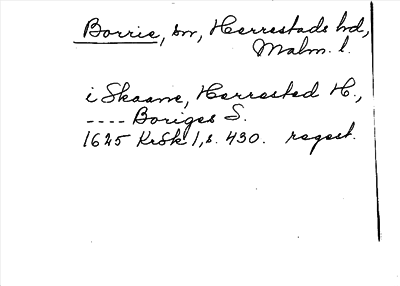 Borrie, sn, Herrestads hd,
Malm. l.
i Skaane, Herrested H.,
---- Boriges S.
1625 KrSk 1, s. 430. regest.